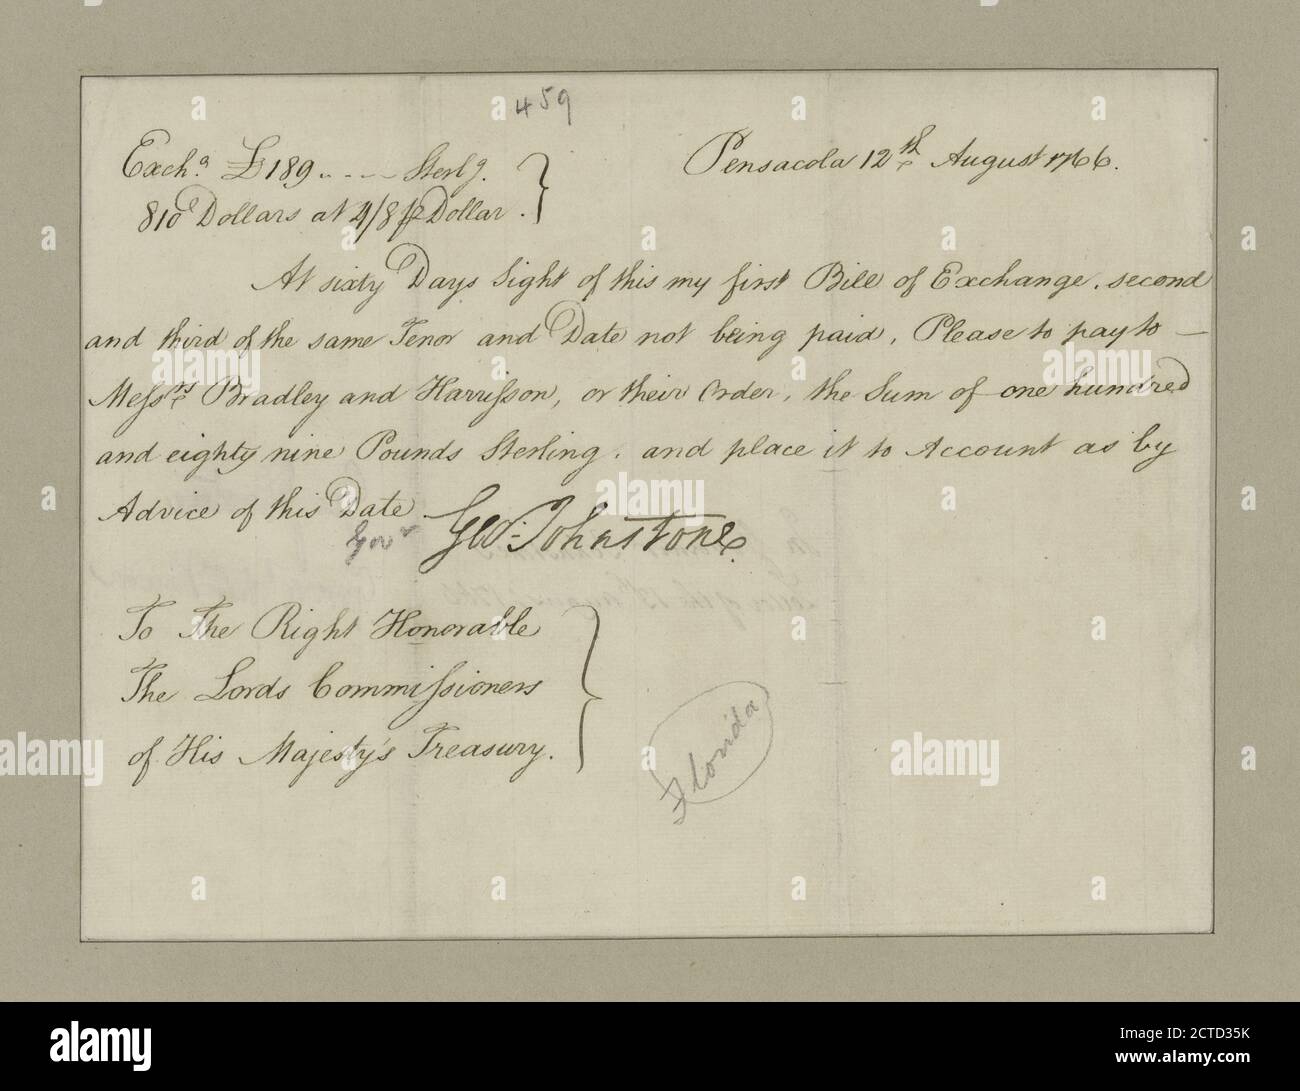 459
Exchᵃ £189 - - - - Sterlg.
Pensacola 12th August 1766.
810 Dollars at 4/8 ⅌ Dollar.
At sixty Days Sight of this my first Bill of Exchange, second
and third of the same Tenor and Date not being paid, Please to pay to —
Messrs Bradley and Harrisson, or their Order, the Sum of one hundred
and eighty nine Pounds Sterling, and place it to Account as by
Advice of this Date
Govr Geo: Johnstone.
To The Right Honorable
The Lords Commissioners
of His Majesty's Treasury.
Florida
alamy
Image ID: 2CTD35K
www.alamy.com